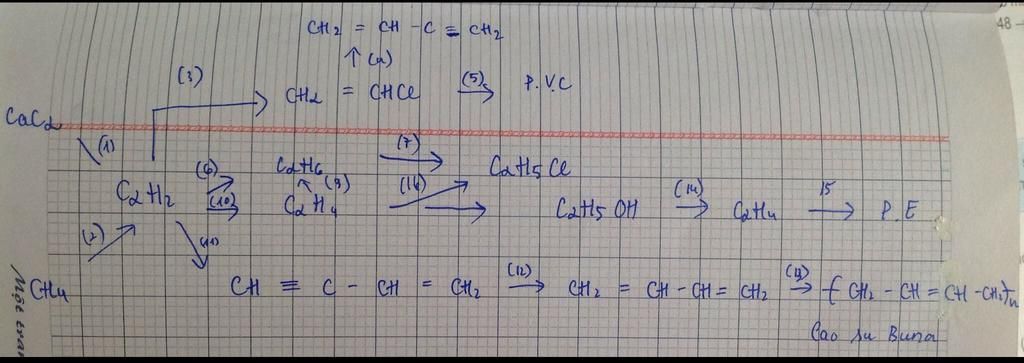 CH2 = CH - C ≡ CH2
↑ (4)
(3)
CH2 = CHCl (5) → P.V.C
CaC2
(1)
(6) C2H6 (7) → C2H5Cl
C2H2 (10) → ↑ (9) C2H4 (16) → C2H5OH (14) → C2H4 15 → P.E
(2) (11)
CH4 CH ≡ C - CH = CH2 (12) → CH2 = CH - CH = CH2 (13) → ( CH2 - CH = CH - CH2 )n
Cao su Buna
48